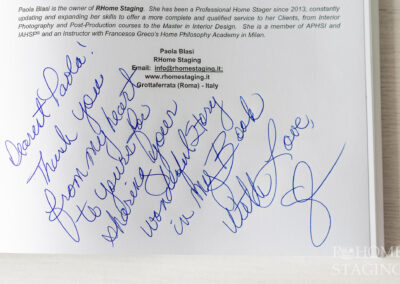 Paola Blasi is the owner of RHome Staging. She has been a Professional Home Stager since 2013, constantly
updating and expanding her skills to offer a more complete and qualified service to her Clients, from Interior
Photography and Post-Production courses to the Master in Interior Design. She is a member of APHSI and
IAHSP® and an Instructor with Francesca Greco's Home Philosophy Academy in Milan.
Paola Blasi
RHome Staging
Email: info@rhomestaging.it;
www.rhomestaging.it
Grottaferrata (Roma) - Italy
Dearest Paola!
Thank you
from my heart
to yours for
sharing your
wonderful Story
in my Book
With Love,
RHOME
STAGING